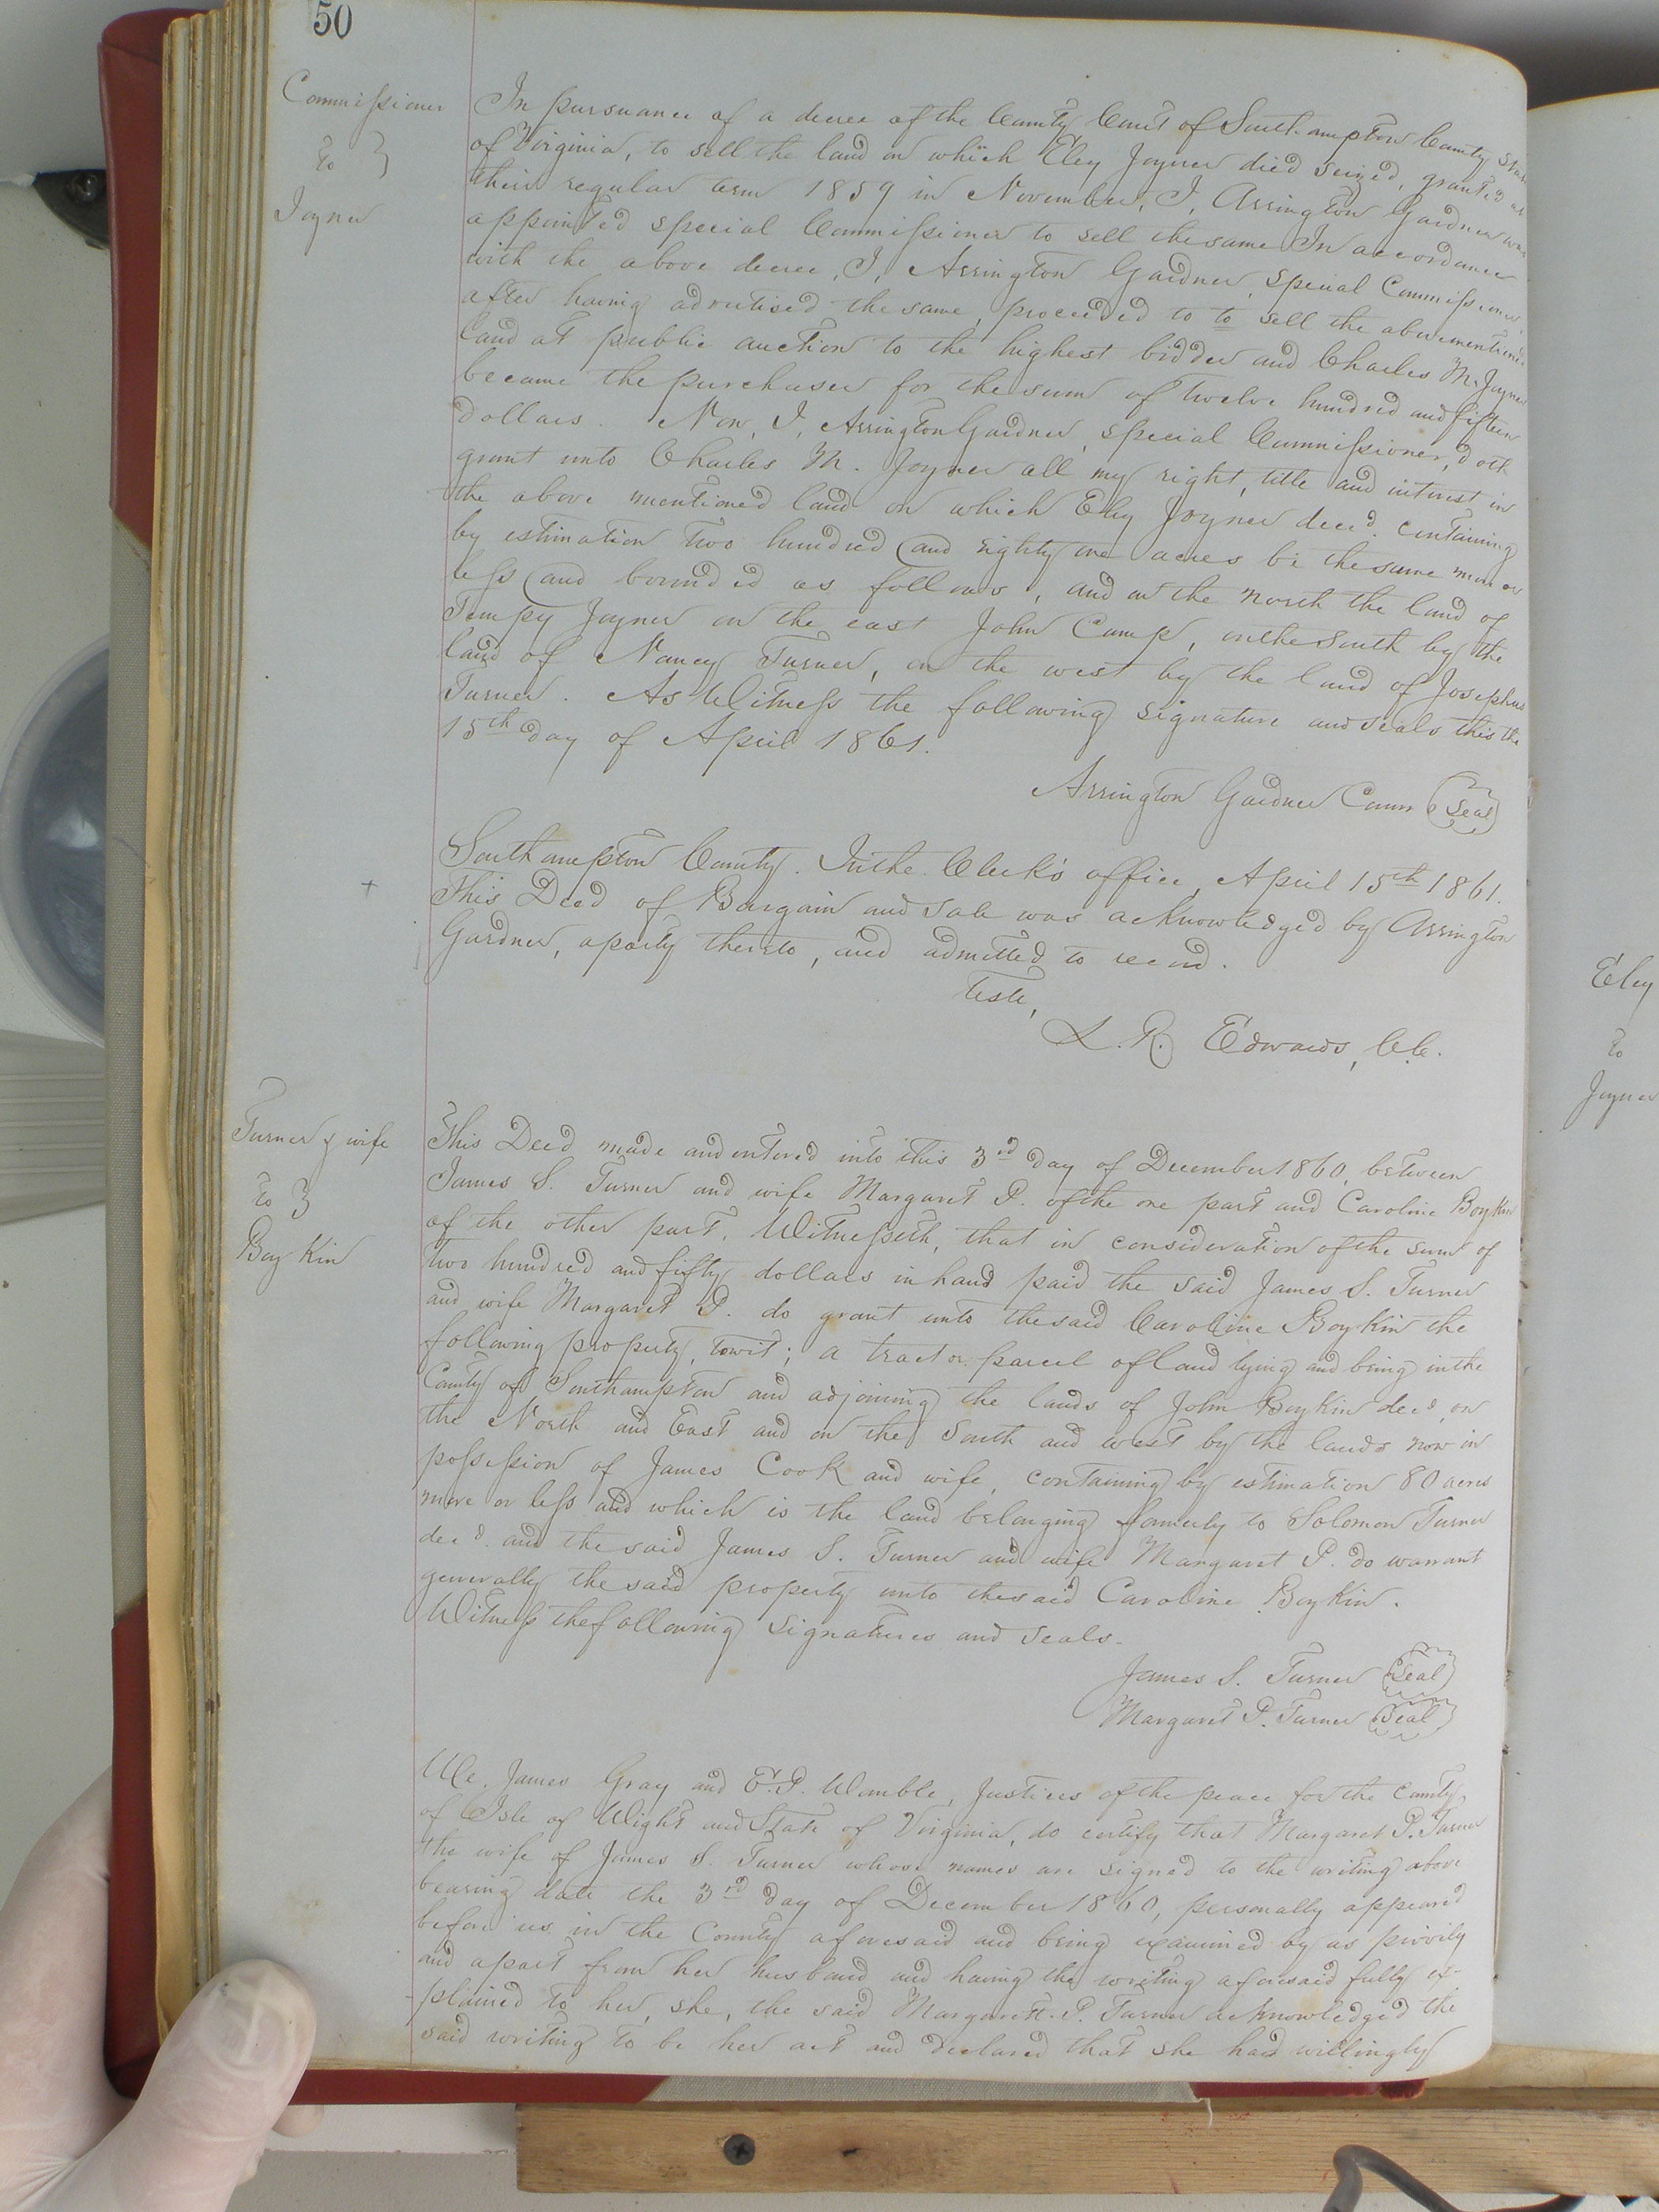 50
Commissioner
to }
Joyner
In pursuance of a decree of the County Court of Southampton County State
of Virginia, to sell the land on which Eley Joyner died seized, granted at
their regular term 1859 in November, I, Arrington Gardner was
appointed special Commissioner to sell the same In accordance
with the above decree, I, Arrington Gardner, special Commissioner,
after having advertised the same, proceeded to to sell the abovementioned
land at public auction to the highest bidder and Charles M. Joyner
became the purchaser for the sum of twelve hundred and fifteen
dollars. Now, I, Arrington Gardner, special Commissioner, doth
grant unto Charles M. Joyner all my right, title and interest in
the above mentioned land on which Eley Joyner decd. containing
by estimation two hundred and eighty one acres be the same more or
less and bounded as follows, and on the north the land of
Tempy Joyner on the east John Camp, on the South by the
land of Nancy Turner, on the west by the land of Josephus
Turner. As Witness the following signature and seals this the
15th day of April 1861.
Arrington Gardner Comm (Seal)
Southampton County. In the Clerk's office, April 15th 1861.
This Deed of Bargain and Sale was acknowledged by Arrington
Gardner, a party thereto, and admitted to record.
Teste,
L. R. Edwards, C.C.
Turner & wife
to }
Boykin
This Deed made and entered into this 3rd day of December 1860, between
James S. Turner and wife Margaret P. of the one part and Caroline Boykin
of the other part, Witnesseth, that in consideration of the sum of
two hundred and fifty dollars in hand paid the said James S. Turner
and wife Margaret P. do grant unto the said Caroline Boykin the
following property, towit; a tract or parcel of land lying and being in the
County of Southampton and adjoining the lands of John Boykin decd, on
the North and East and on the South and west by the lands now in
possession of James Cook and wife, containing by estimation 80 acres
more or less and which is the land belonging formerly to Solomon Turner
decd. and the said James S. Turner and wife Margaret P. do warrant
generally the said property unto the said Caroline Boykin.
Witness the following signatures and seals.
James S. Turner (Seal)
Margaret P. Turner (Seal)
We, James Gray and E. P. Womble, Justices of the peace for the County
of Isle of Wight and State of Virginia, do certify that Margaret P. Turner
the wife of James S. Turner whose names are signed to the writing above
bearing date the 3rd day of December 1860, personally appeared
before us in the County aforesaid and being examined by us privily
and apart from her husband and having the writing aforesaid fully ex-
plained to her, she, the said Margarett. P. Turner acknowledged the
said writing to be her act and declared that she had willingly
Eley
to
Joyner